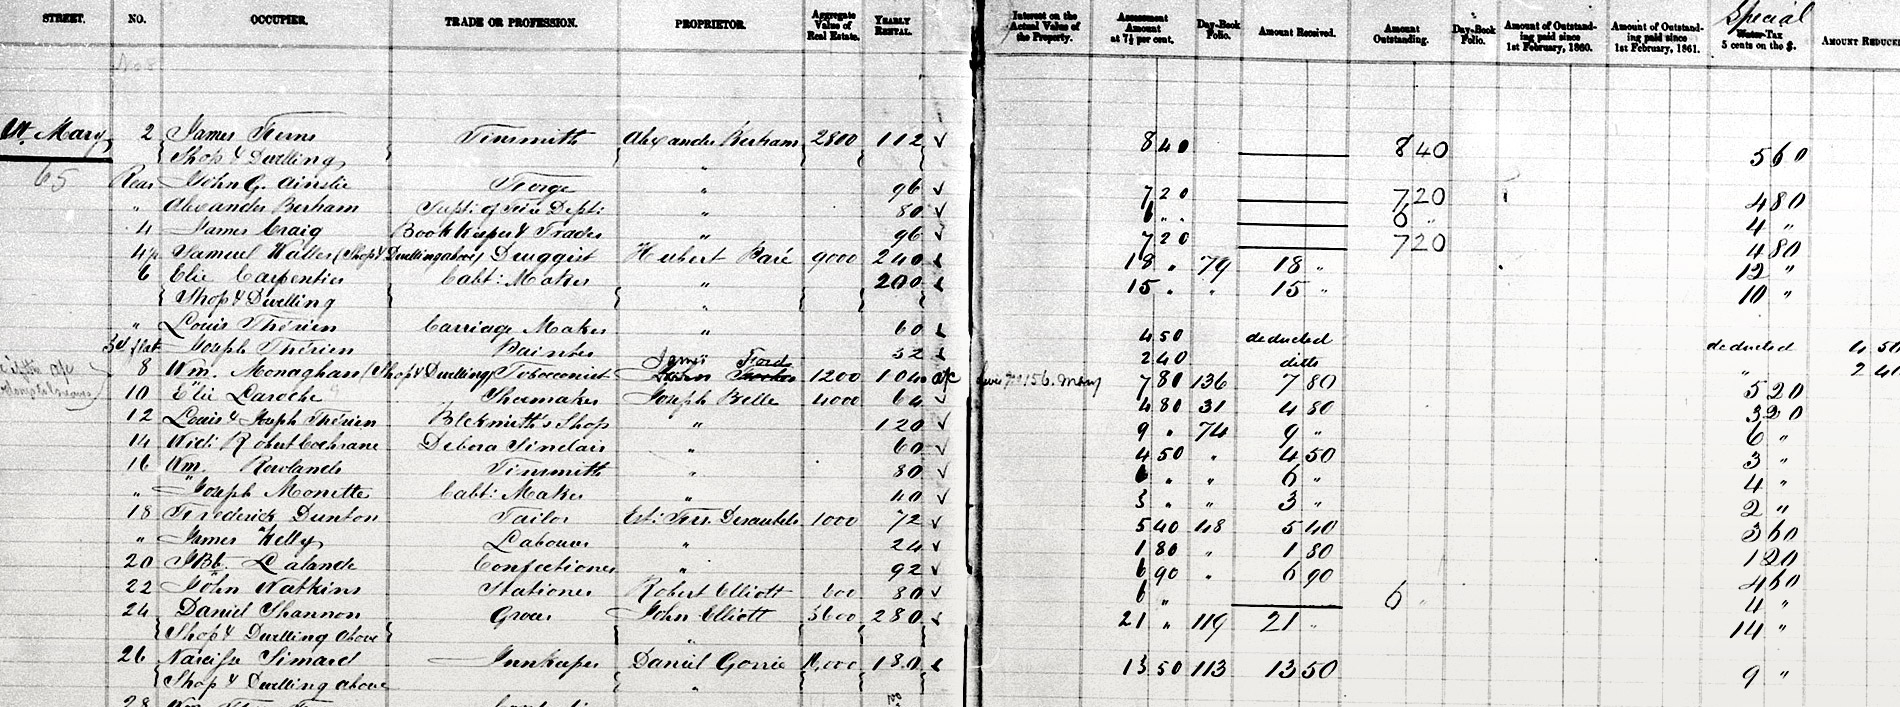 STREET. NO. OCCUPIER. TRADE OR PROFESSION. PROPRIETOR. Aggregate Value of Real Estate. YEARLY RENTAL. Interest on the Actual Value of the Property. Assessment Amount at 7½ per cent. Day-Book Folio. Amount Received. Amount Outstanding. Day-Book Folio. Amount of Outstanding paid since 1st February, 1860. Amount of Outstanding paid since 1st February, 1861. Special Water-Tax 5 cents on the $. AMOUNT REDUCED
St. Mary 2 James Ferns Tinsmith Alexander Berham 2800 112 8 40 8 40 5 60
Shop & Dwelling
65 Rear John G. Ainslie Forge " 96 7 20 7 20 4 80
" Alexander Berham Supt: of Fire Dept: " 80 6 " 6 " 4 "
4 James Craig Book Keeper & Trader " 96 7 20 7 20 4 80
4½ Samuel Walter (Shop & Dwelling above) Druggist Hubert Paré 9000 240 18 " 79 18 " 12 "
6 Elie Carpentier Cabt: Maker " 200 15 " " 15 " 10 "
Shop & Dwelling "
" Louis Thérien Carriage Maker " 60 4 50 deducted deducted 4 50
3d flat Joseph Thérien Painter " 32 2 40 ditto " 2 40
8 Wm. Monaghan (Shop & Dwelling) Tobacconist James Ford 1200 104 a/c 156. Mary 7 80 136 7 80 5 20
10 Elie Laroche Shoemaker Joseph Belle 4000 64 4 80 31 4 80 3 20
12 Louis & Joseph Thérien Blcksmith's Shop " 120 9 " 74 9 " 6 "
14 Wid: Robert Cochrane Debora Sinclair " 60 4 50 " 4 50 3 "
16 Wm. Rowlands Tinsmith " 80 6 " " 6 " 4 "
" Joseph Monette Cabt: Maker " 40 3 " " 3 " 2 "
18 Frederick Dunton Tailor Est: Frs. Desautels 1000 72 5 40 48 5 40 3 60
" James Kelly Labourer " 24 1 80 " 1 80 1 20
20 J Bt. Lalande Confectioner " 92 6 90 " 6 90 4 60
22 John Watkins Stationer Robert Elliott 600 80 6 " 6 " 4 "
24 Daniel Shannon Grocer John Elliott 3600 280 21 " 119 21 " 14 "
Shop & Dwelling above "
26 Narcisse Simard Innkeeper Daniel Gorrie 180 13 50 113 13 50 9 "
Shop & Dwelling above "
28 Wm.